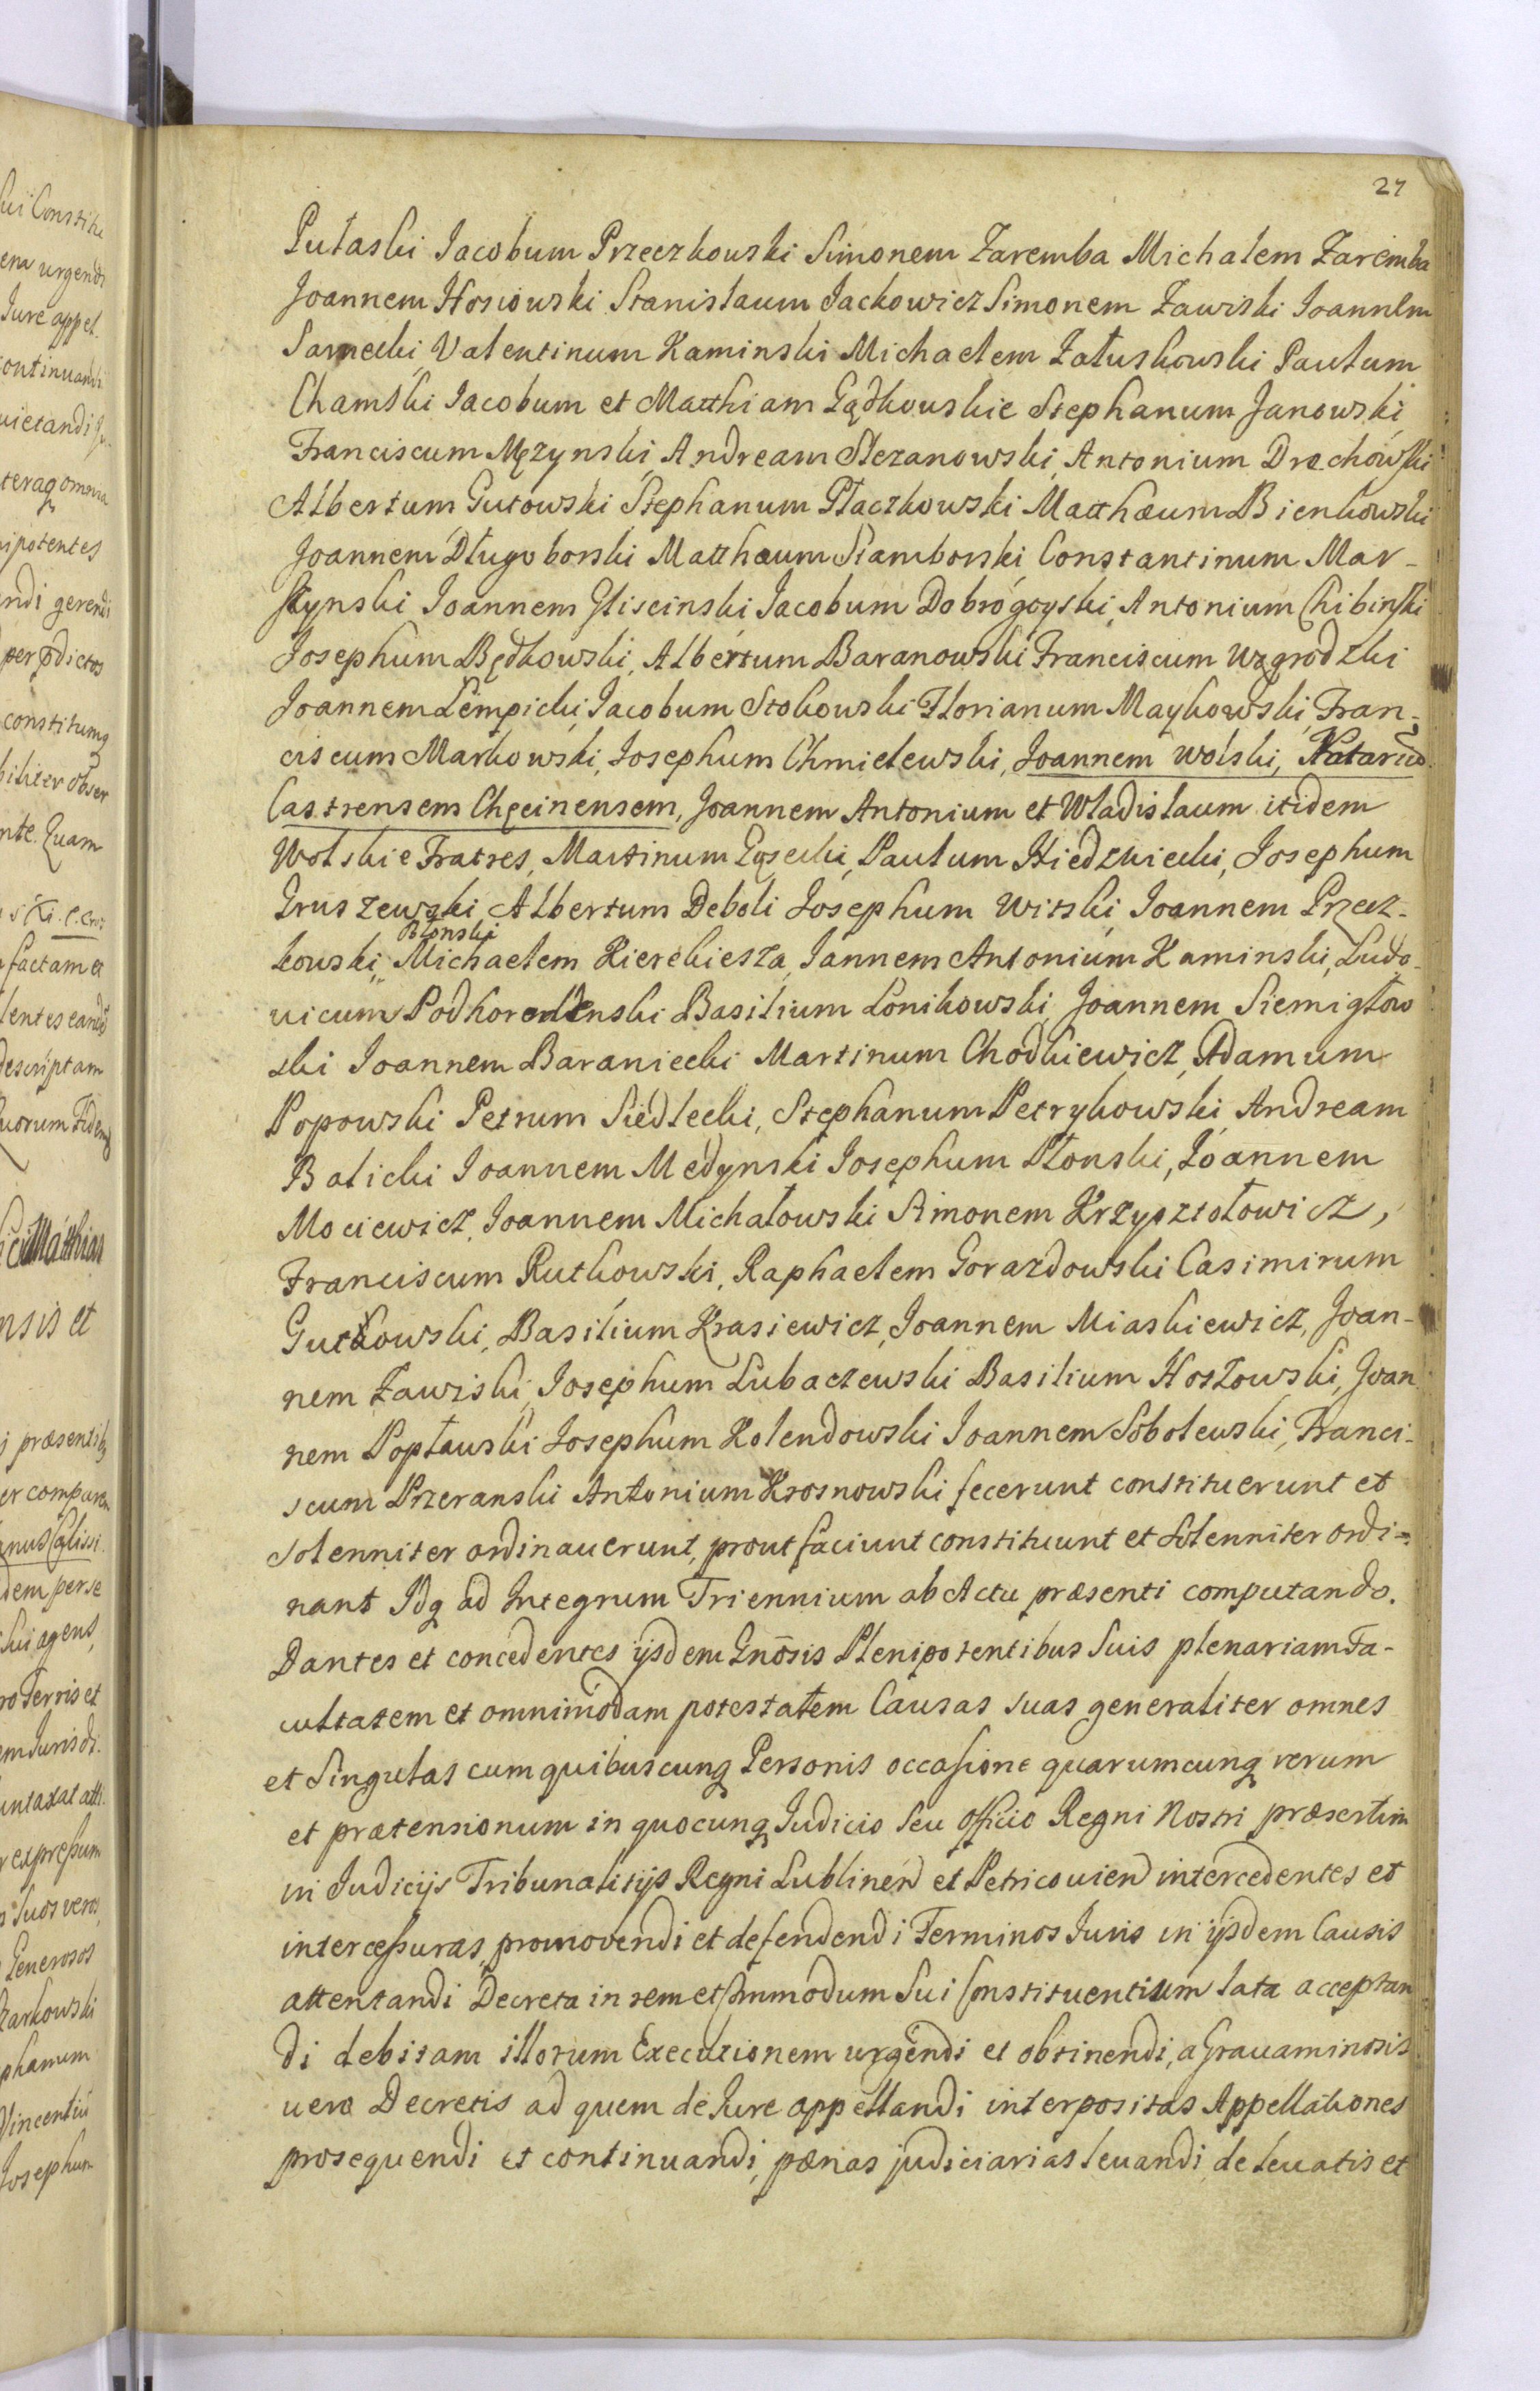 27
Pułaski Jacobum Przeczkowski Simonem Zaremba Michalem Zaremba
Joannem Hosiowski Stanislaum Jackowicz Simonem Zawiski Joannem
Sarnecki Valentinum Kaminski Michaelem Załuskowski Paulum
Chamski Jacobum et Matthiam Gądkouskie Stephanum Janowski
Franciscum Męzynski, Andream Slezanowski, Antonium Drochowski
Albertum Gutowski Stephanum Płaczkowski Matthæum Bienkowski
Joannem Długoborski Matthæum Stamborski Constantinum Mar-
szynski Joannem Gliscinski Jacobum Dobrogoyski, Antonium Chibinski
Josephum Będkowski, Albertum Baranowski Franciscum Uzgrodzki
Joannem Lempicki, Jacobum Stokowski Florianum Maykowski, Fran-
ciscum Markowski, Josephum Chmielewski, Joannem Wolski, Notariũ
Castrensem Chęcinensem, Joannem Antonium et Wladislaum itidem
Wolskie Fratres, Martinum Gąsecki, Paulum Hiedzwiecki, Josephum
Gruszewski, Albertum Deboli Josephum Witski Joannem Przecz-
Błonski
kouski, Michaelem Kierekiesza, Jannem Antonium Kaminski, Ludo-
uicum Podhorodenski Basilium Lonikowski, Joannem Siemigłow
ski Joannem Baraniecki Martinum Chodkiewicz, Adamum
Popowski Petrum Siedlecki, Stephanum Petrykowski, Andream
Balicki Joannem Medynski Josephum Płonski, Joannem
Mociewicz, Joannem Michałowski Simonem Krzysztołowicz,
Franciscum Rutkowski, Raphaelem Gorazdowski Casimirum
Gutkowski, Basilium Krasiewicz, Joannem Miaskiewicz, Joan-
nem Zawiski, Josephum Lubaczewski Basilium Hoszowski, Joan
nem Popławski Josephum Kolendowski Joannem Sobolewski, Franci-
scum Przeranski Antonium Krosnowski fecerunt constituerunt et
solenniter ordinauerunt, prout faciunt constituunt et solenniter ordi=
nant Idq ad Integrum Triennium ab Actu præsenti computando.
Dantes et concedentes ijsdem Gnõsis Plenipotentibus suis plenariam Fa-
cultatem et omnimodam potestatem Causas suas generaliter omnes
et singulas cum quibuscunq Personis occasione quarumcunq rerum
et prætensionum in quocunq Judicio seu officio Regni Nostri præsertim
in Judicijs Tribunalitijs Regni Lublinen et Petricouien intercedentes et
intercessuras, promovendi et defendendi Terminos Juris in ijsdem Causis
attentandi Decreta in rem et commodum sui constituentium lata acceptan
di debitam illorum Executionem urgendi et obtinendi, a Grauaminosis
uero Decretis ad quem de Jure appellandi interpositas Appellationes
prosequendi et continuandi, pænas judiciarias leuandi, de leuatis et